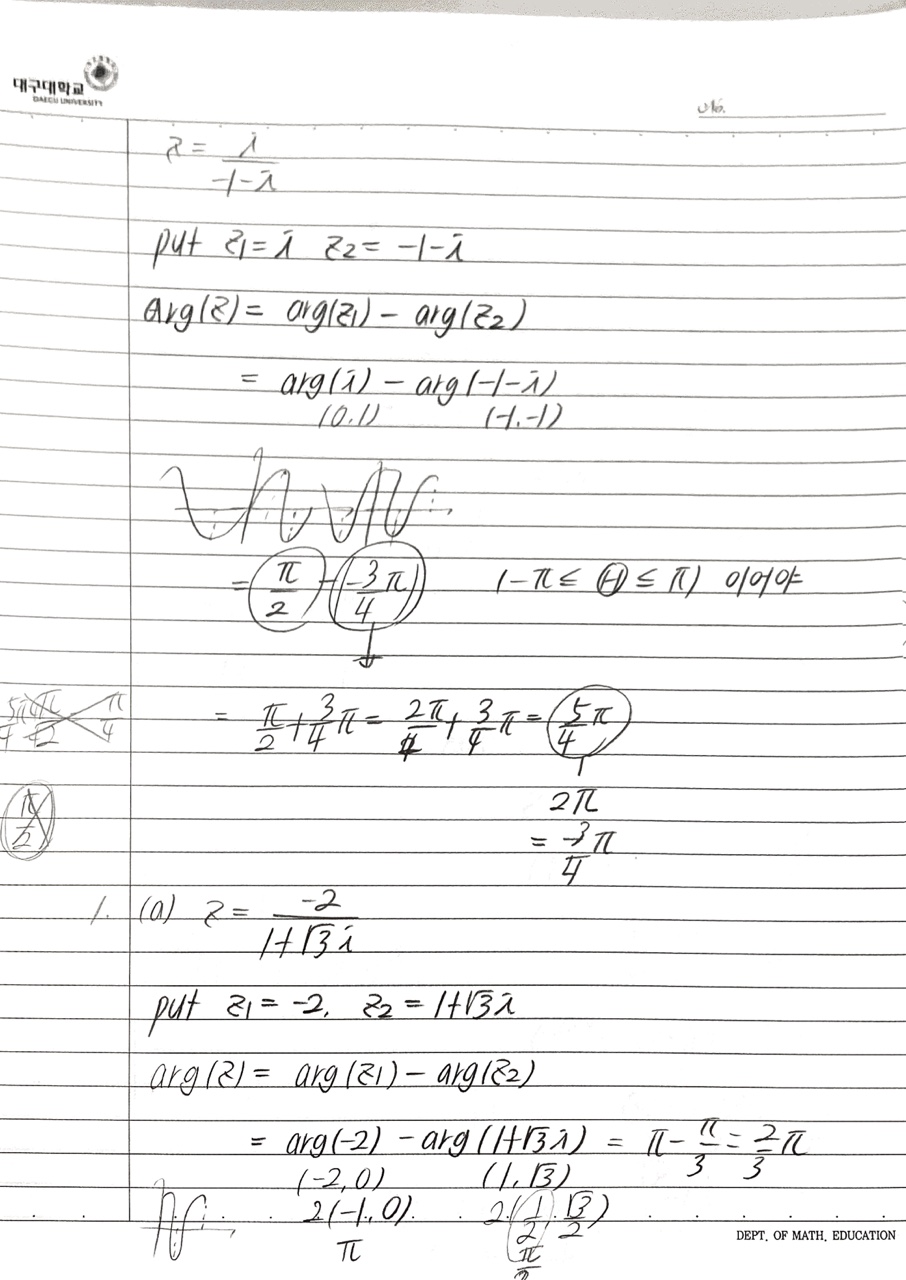 대구대학교
DAEGU UNIVERSITY
No.
z = i / (-1-i)
put z₁ = i z₂ = -1-i
Arg(z) = arg(z₁) - arg(z₂)
= arg(i) - arg(-1-i)
(0.1) (-1.-1)
= π/2 - (-3/4 π) (-π ≤ Θ ≤ π) 이어야
= π/2 + 3/4 π = 2π/4 + 3/4 π = 5/4 π
2π
= -3/4 π
π/2
1. (a) z = -2 / (1+√3 i)
put z₁ = -2, z₂ = 1+√3 i
arg(z) = arg(z₁) - arg(z₂)
= arg(-2) - arg(1+√3 i) = π - π/3 = 2/3 π
(-2,0) (1,√3)
2(-1.0) 2(1/2, √3/2)
π
DEPT. OF MATH. EDUCATION